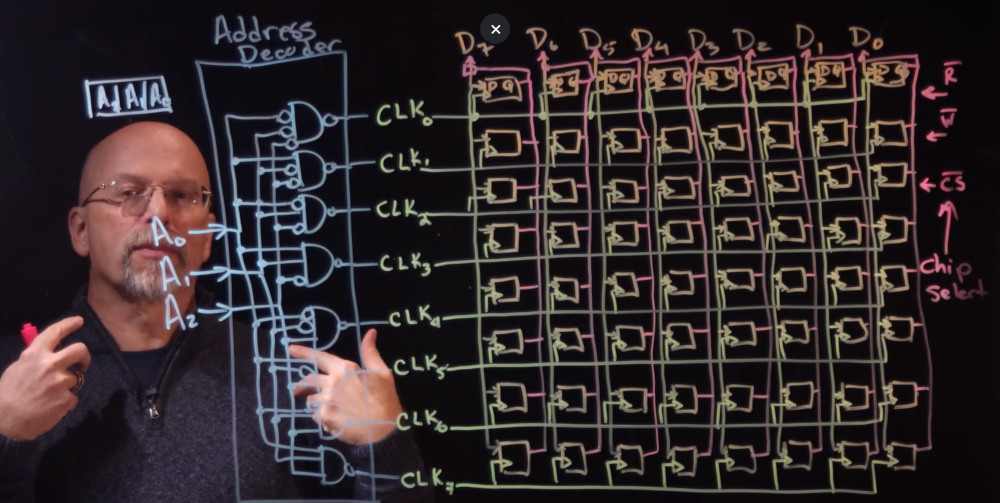 Address
Decoder
A₂ A₁ A₀
A₀
A₁
A₂
CLK₀
CLK₁
CLK₂
CLK₃
CLK₄
CLK₅
CLK₆
CLK₇
D₇ D₆ D₅ D₄ D₃ D₂ D₁ D₀
D Q D Q D Q D Q D Q D Q D Q D Q
R̅
W̅
C̅S̅
Chip
Select